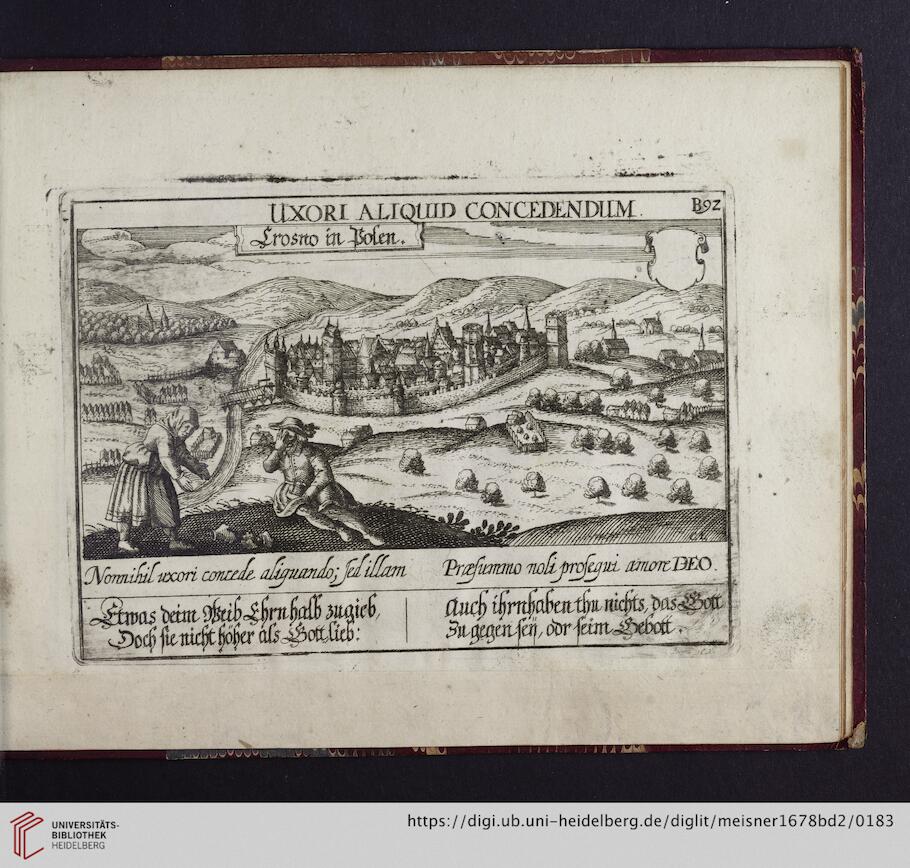 UXORI ALIQUID CONCEDENDUM.
B92
Crosno in Polen.
CE
Nonnihil uxori concede aliquando; sed illam
Præsummo noli prosequi amore DEO.
Etwas deim Weib Ehrnhalb zugieb,
Doch sie nicht höher als Gott lieb:
Auch ihrnhaben thu nichts, das Gott
Zu gegen seÿ, odr seim Gebott.
UNIVERSITÄTS-
BIBLIOTHEK
HEIDELBERG
https://digi.ub.uni-heidelberg.de/diglit/meisner1678bd2/0183